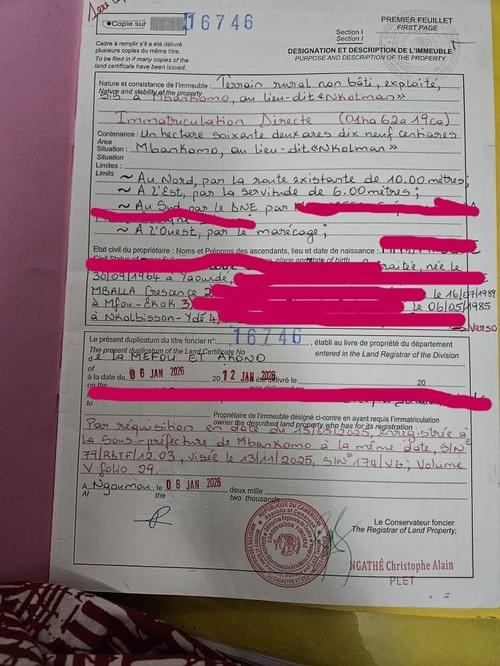 1ère
Copie sur
16746
PREMIER FEUILLET
FIRST PAGE
Section I
Section I
Cadre à remplir s'il a été délivré
plusieurs copies du même titre.
To be filed in if many copies of the
land certificate have been issued.
DESIGNATION ET DESCRIPTION DE L'IMMEUBLE
PURPOSE AND DESCRIPTION OF THE PROPERTY
Nature et consistance de l'immeuble : Terrain rural non bâti, exploité,
Nature and stability of the property
sis à Mbankomo, au lieu-dit «Nkolman»
Immatriculation Directe (01ha 62a 19ca)
Contenance : Un hectare soixante deux ares dix neuf centiares
Area
Situation : Mbankomo, au lieu-dit «Nkolman»
Situation
Limites :
Limits
~ Au Nord, par la route existante de 10.00 mètres;
~ A l'Est, par la servitude de 6.00 mètres;
~ Au Sud, par le DNE par
~ A l'Ouest, par le marécage;
Etat civil du propriétaire : Noms et Prénoms des ascendants, lieu et date de naissance :
place and date of birth
retraité, née le
30/09/1964 à Yaoundé,
MBALLA Crescence 2 le 16/07/1989
à Mfou-Ekok 3) le 06/05/1985
à Nkolbisson-Ydé 4)
Verso
Le présent duplicatum du titre foncier n° 16746, établi au livre de propriété du département
The present duplicatum of the Land Certificate No entered in the Land Registrar of the Division
de LA MEFOU ET AKONO
of
à la date du 06 JAN 2026 20 12 JAN 2026 délivré le 20
on the
to
Propriétaire de l'immeuble désigné ci-contre en ayant requis l'immatriculation
owner the described land property who has for its registration
Par réquisition en date du 15/05/2025, enregistrée à
la Sous-préfecture de Mbankomo à la même date, S/N°
79/RLTF/12.03, visée le 13/11/2025, S/N° 174/V6; Volume
V folio 29.
A Ngoumou, le 06 JAN 2026 deux mille
At the two thousand
Le Conservateur foncier
The Registrar of Land Property,
REPUBLIQUE DU CAMEROUN
NGATHÉ Christophe Alain
PLET